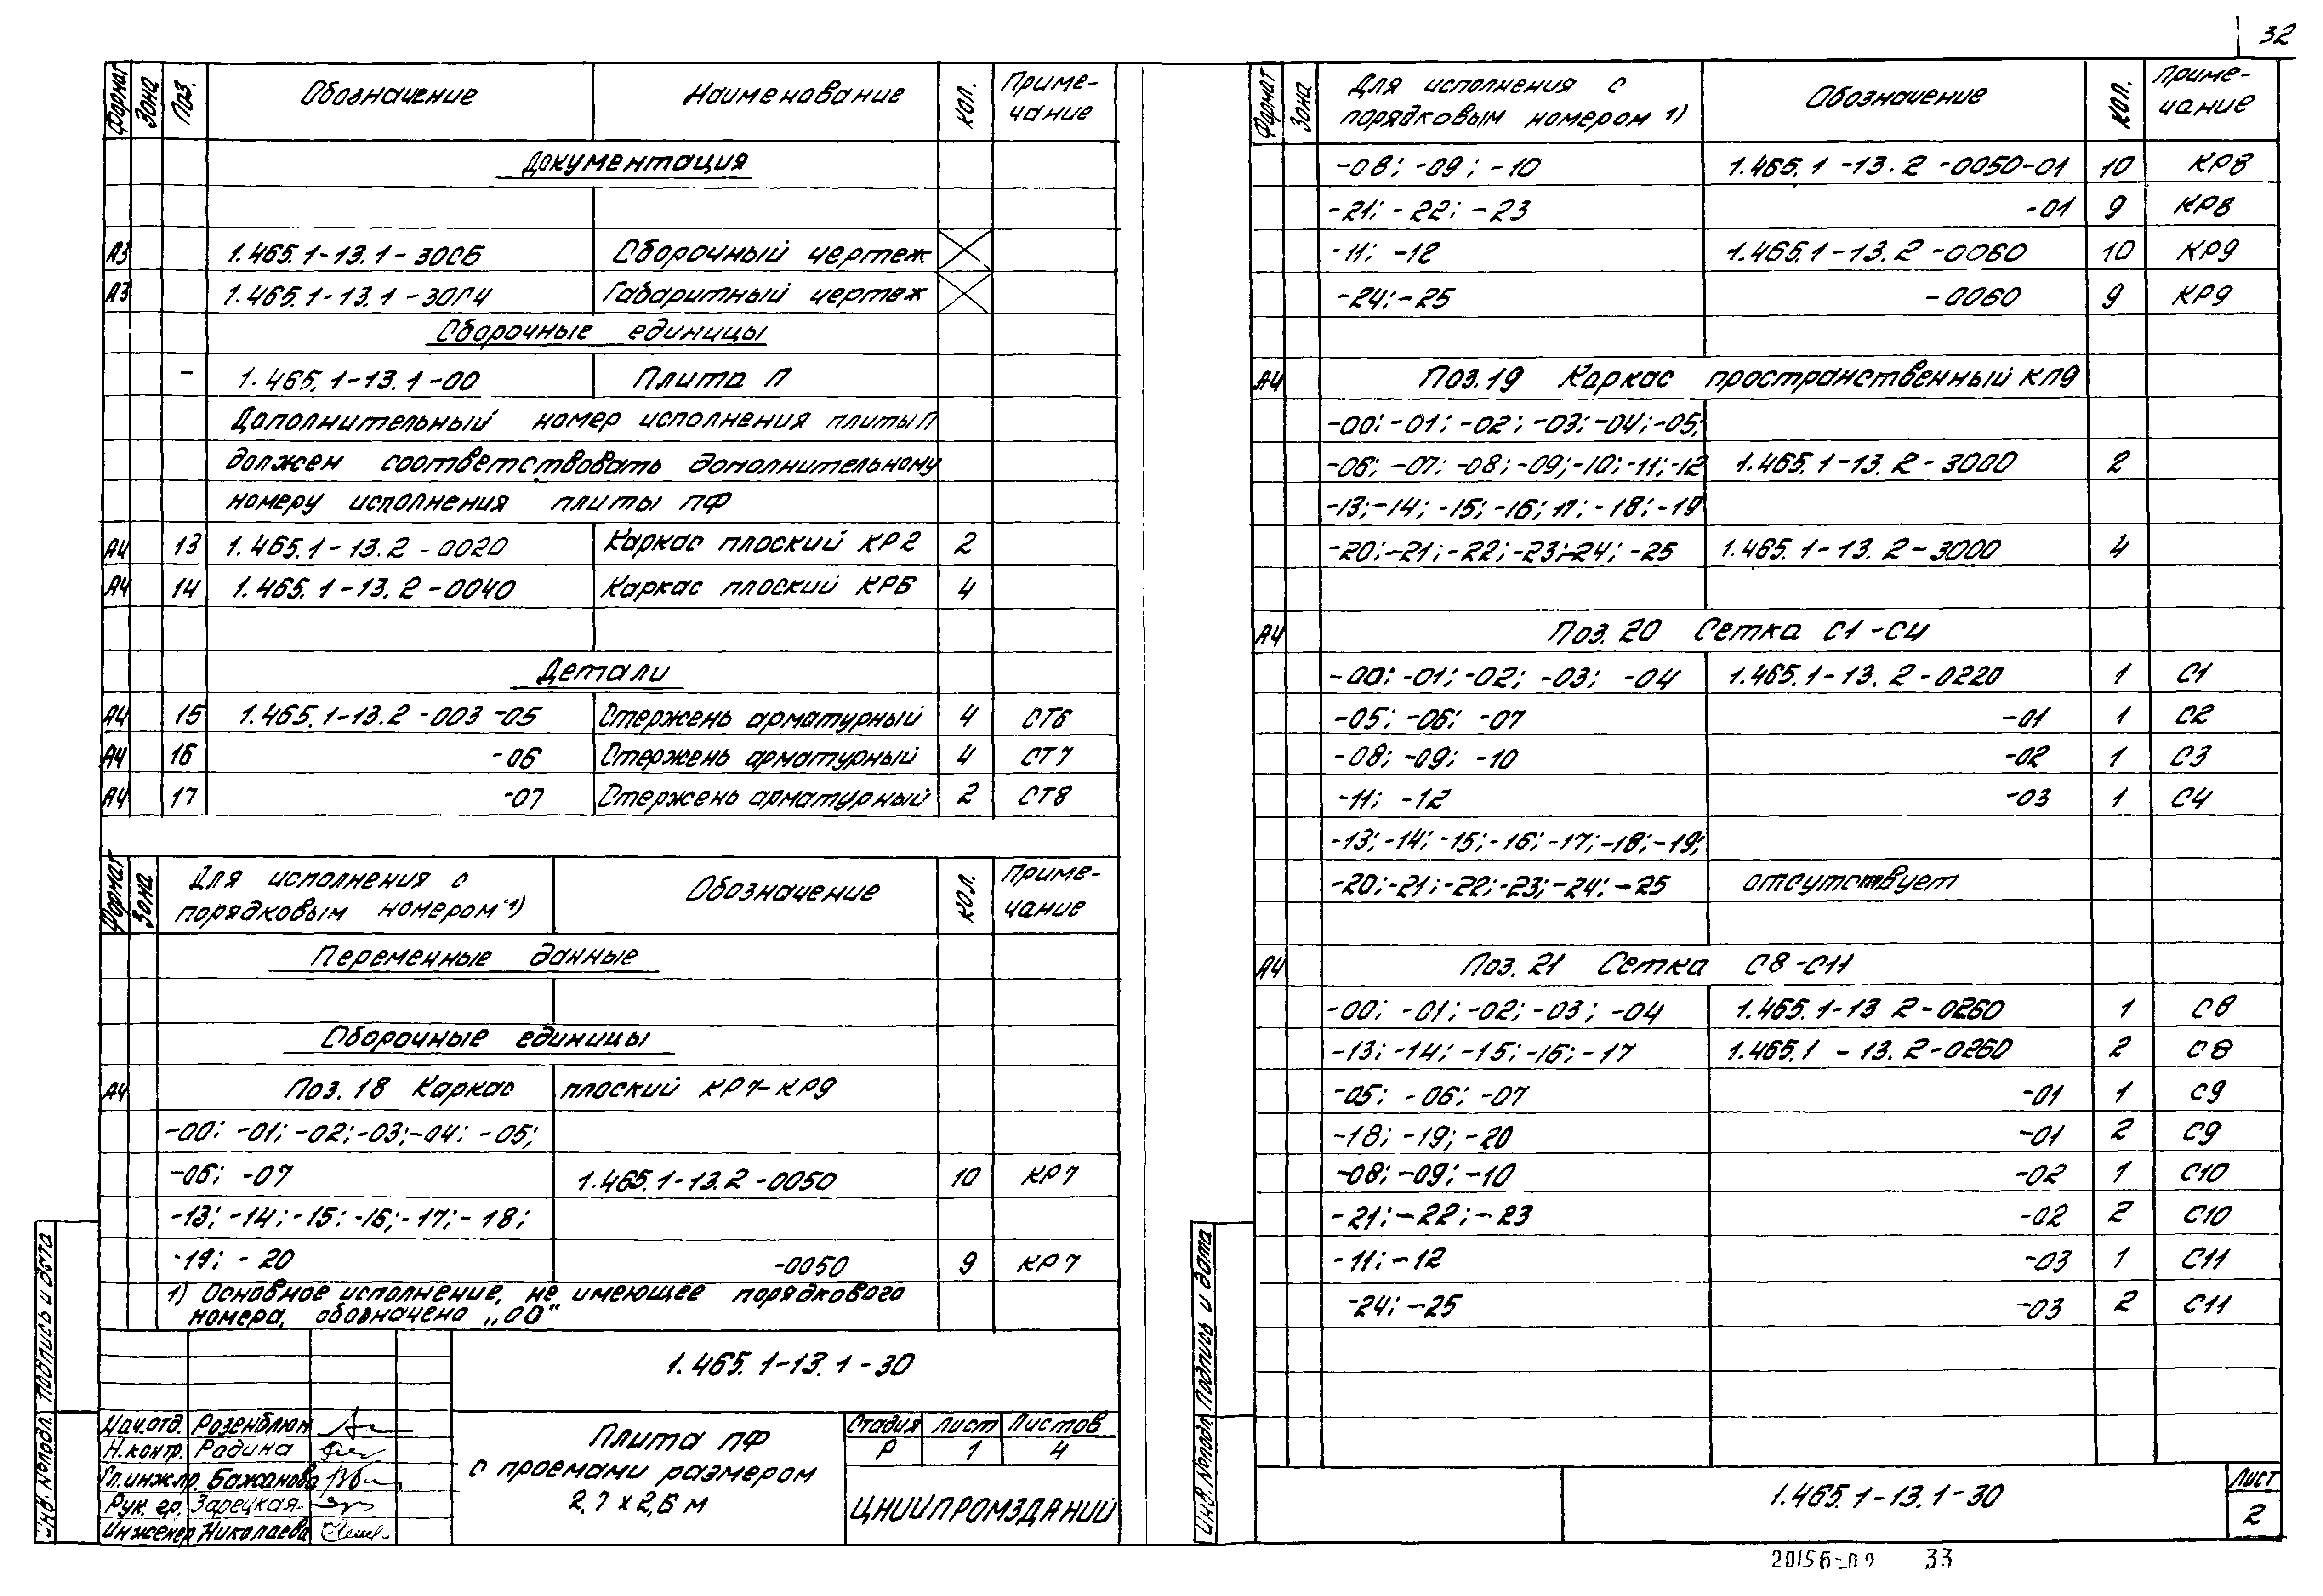 32
Формат Зона Поз. Обозначение Наименование Кол. Приме-
чание
Документация
А3 1.465.1-13.1-30СБ Сборочный чертеж
А3 1.465.1-13.1-30ГЧ Габаритный чертеж
Сборочные единицы
- 1.465.1-13.1-00 Плита П
Дополнительный номер исполнения плиты П
должен соответствовать дополнительному
номеру исполнения плиты ПФ
А4 13 1.465.1-13.2-0020 Каркас плоский КР2 2
А4 14 1.465.1-13.2-0040 Каркас плоский КР6 4
Детали
А4 15 1.465.1-13.2-003-05 Стержень арматурный 4 СТ6
А4 16 -06 Стержень арматурный 4 СТ7
А4 17 -07 Стержень арматурный 2 СТ8
Формат Зона Для исполнения с
порядковым номером 1) Обозначение Кол. Приме-
чание
Переменные данные
Сборочные единицы
А4 Поз. 18 Каркас плоский КР7-КР9
-00; -01; -02; -03; -04; -05;
-06; -07 1.465.1-13.2-0050 10 КР7
-13; -14; -15; -16; -17; -18;
-19; -20 -0050 9 КР7
1) Основное исполнение, не имеющее порядкового
номера, обозначено „00"
1.465.1-13.1-30
Нач.отд. Розенблюм
Н.контр. Радина
Гл.инж.пр. Бажанова
Рук. гр. Зарецкая
Инженер Николаева
Плита ПФ
с проемами размером
2,7 x 2,6 м
Стадия Лист Листов
Р 1 4
ЦНИИПРОМЗДАНИЙ
Инв. № подл. Подпись и дата
Формат Зона Для исполнения с
порядковым номером 1) Обозначение Кол. Приме-
чание
-08; -09; -10 1.465.1-13.2-0050-01 10 КР8
-21; -22; -23 -01 9 КР8
-11; -12 1.465.1-13.2-0060 10 КР9
-24; -25 -0060 9 КР9
А4 Поз.19 Каркас пространственный КП9
-00; -01; -02; -03; -04; -05;
-06; -07; -08; -09; -10; -11; -12 1.465.1-13.2-3000 2
-13; -14; -15; -16; 17; -18; -19
-20; -21; -22; -23; -24; -25 1.465.1-13.2-3000 4
А4 Поз. 20 Сетка С1-С4
-00; -01; -02; -03; -04 1.465.1-13.2-0220 1 С1
-05; -06; -07 -01 1 С2
-08; -09; -10 -02 1 С3
-11; -12 -03 1 С4
-13; -14; -15; -16; -17; -18; -19;
-20; -21; -22; -23; -24; -25 отсутствует
А4 Поз. 21 Сетка С8-С11
-00; -01; -02; -03; -04 1.465.1-13 2-0260 1 С8
-13; -14; -15; -16; -17 1.465.1-13.2-0260 2 С8
-05; -06; -07 -01 1 С9
-18; -19; -20 -01 2 С9
-08; -09; -10 -02 1 С10
-21; -22; -23 -02 2 С10
-11; -12 -03 1 С11
-24; -25 -03 2 С11
Инв. № подл. Подпись и дата
1.465.1-13.1-30
Лист
2
20156-02 33